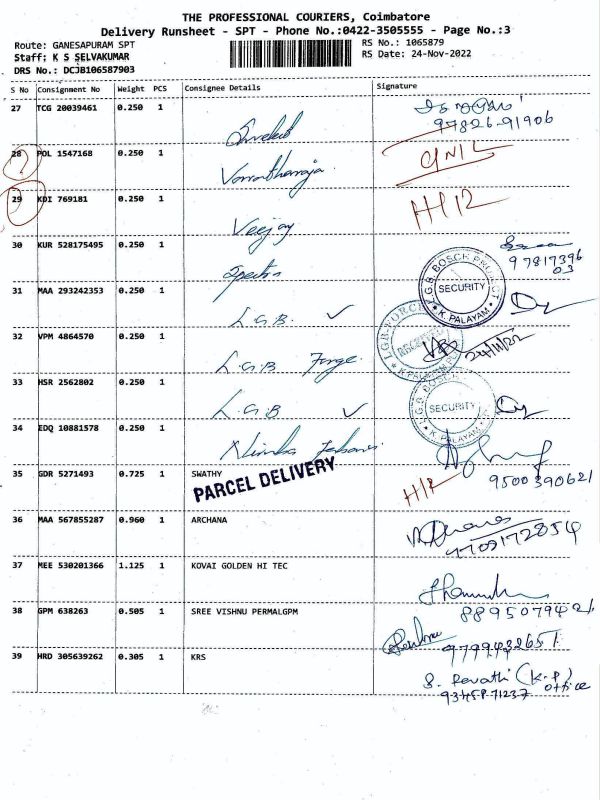 THE PROFESSIONAL COURIERS, Coimbatore
Delivery Runsheet - SPT - Phone No.:0422-3505555 - Page No.:3
Route: GANESAPURAM SPT
RS No.: 1065879
Staff: K S SELVAKUMAR
RS Date: 24-Nov-2022
DRS No.: DCJB106587903
S No Consignment No Weight PCS Consignee Details Signature
27 TCG 20039461 0.250 1
97826-91906
28 POL 1547168 0.250 1
29 KDI 769181 0.250 1 H/R
Veejay
30 KUR 528175495 0.250 1
97817396
03
31 MAA 293242353 0.250 1
L.G.B. BOSCH PROJECT
SECURITY
K. PALAYAM
L.G.B. ✓
32 VPM 4864570 0.250 1
L.G.B. FORGE
RECEIVED
24/11/22
L.G.B Forge
33 HSR 2562802 0.250 1
L.G.B. BOSCH
SECURITY
K. PALAYAM
L.G.B ✓
34 EDQ 10881578 0.250 1
35 GDR 5271493 0.725 1 SWATHY
PARCEL DELIVERY
H/R
9500390621
36 MAA 567855287 0.960 1 ARCHANA
37 MEE 530201366 1.125 1 KOVAI GOLDEN HI TEC
38 GPM 638263 0.505 1 SREE VISHNU PERMALGPM
8895079421
39 HRD 305639262 0.305 1 KRS
9799432651
S. Revathi (K.P)
office
93458-71237